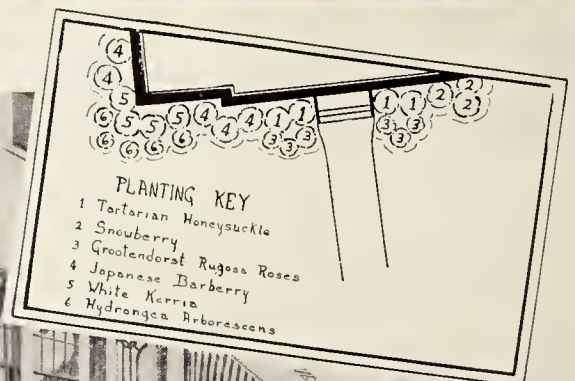 4 4 5 6 5 5 5 4 4 4 1 1 1 1 2 2 2
6 6 6 6 3 3 3 3 3 3
PLANTING KEY
1 Tartarian Honeysuckle
2 Snowberry
3 Grootendorst Rugosa Roses
4 Japanese Barberry
5 White Kerria
6 Hydrangea Arborescens